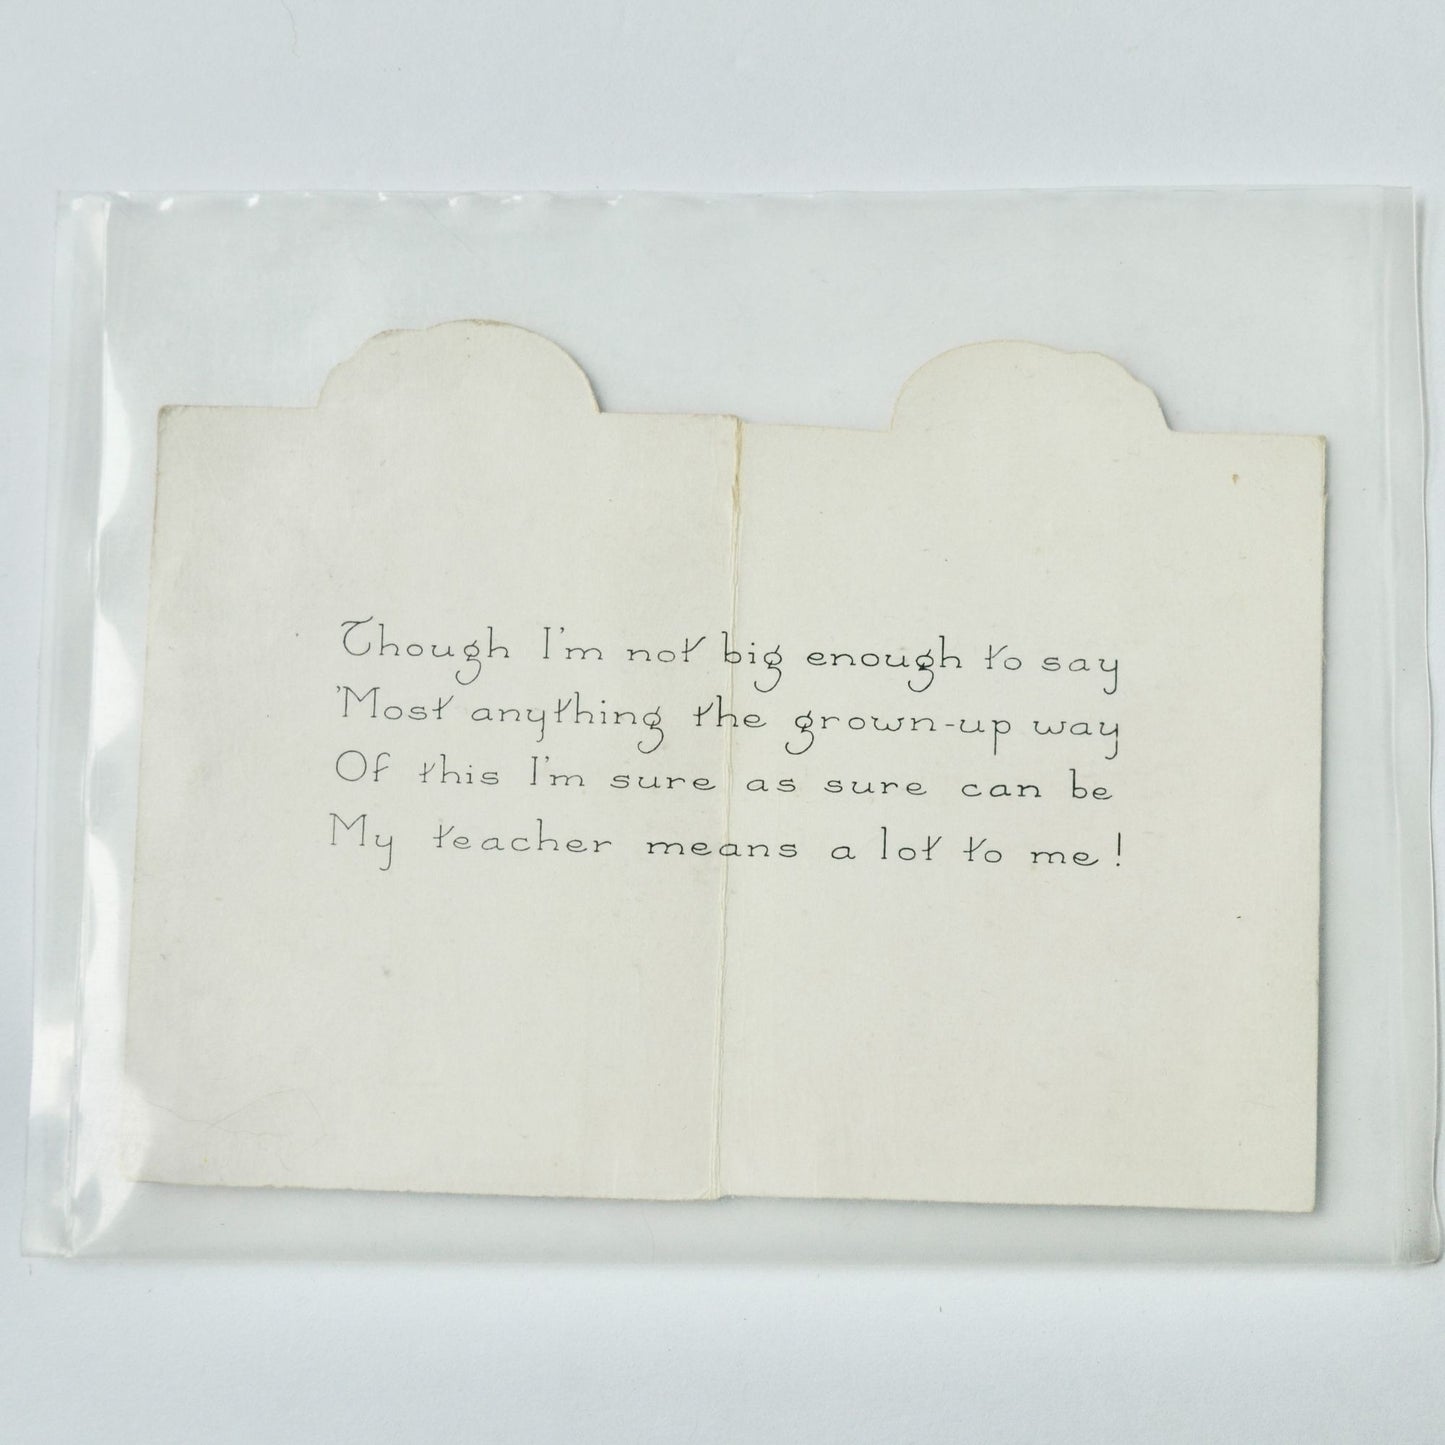 Though I'm not big enough to say
'Most anything the grown-up way
Of this I'm sure as sure can be
My teacher means a lot to me!